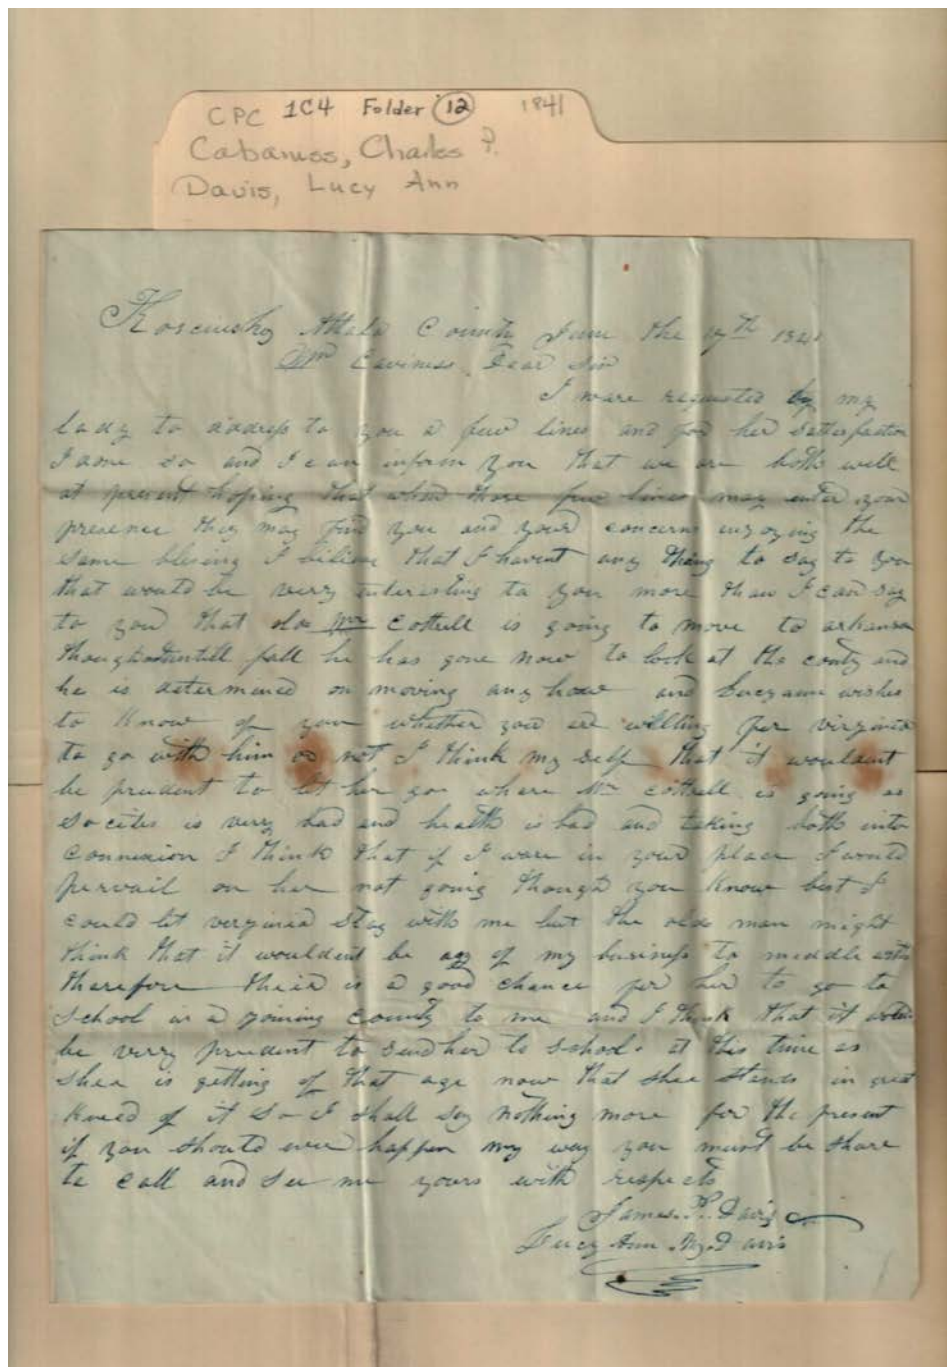 CPC 1C4 Folder 12 1841
Cabaness, Charles P.
Davis, Lucy Ann
Kosciusko Attala County June the 17th 1841
Wm Caviness Dear Sir
I ware requested by my
lady to address to you a few lines and for her sattisfaction
I ame so and I can inform you that we are both well
at present hoping that when those few lines may enter your
presence they may find you and your concerns enjoying the
same blesing I believe that I havent any thing to say to you
that would be very interesting to you more than I can say
to you that old Mr Cottrell is going to move to arkansa
though untill fall he has gone now to look at the conty and
he is determened on moving any how and Lucy ann wishes
to know of you whether you are willing for virginia
to go with him or not I think my self that it wouldent
be prudent to let her go where Mr Cottrell is going as
Socites is very bad and health is bad and taking both into
Connexion I think that if I ware in your place I would
pervail on her not going though you know best I
could let verginia stay with me but the olde man might
think that it wouldent be any of my business to meddle with
therefore their is a good chance for her to go to
School in a joining County to me and I think that it would
be very prudent to send her to school at this time as
shee is getting of that age now that shee stands in great
kneed of it So I shall say nothing more for the present
if you should ever happen my way you must be share
to call and see me yours with respects
James P. Davis
Lucy Ann M. Davis